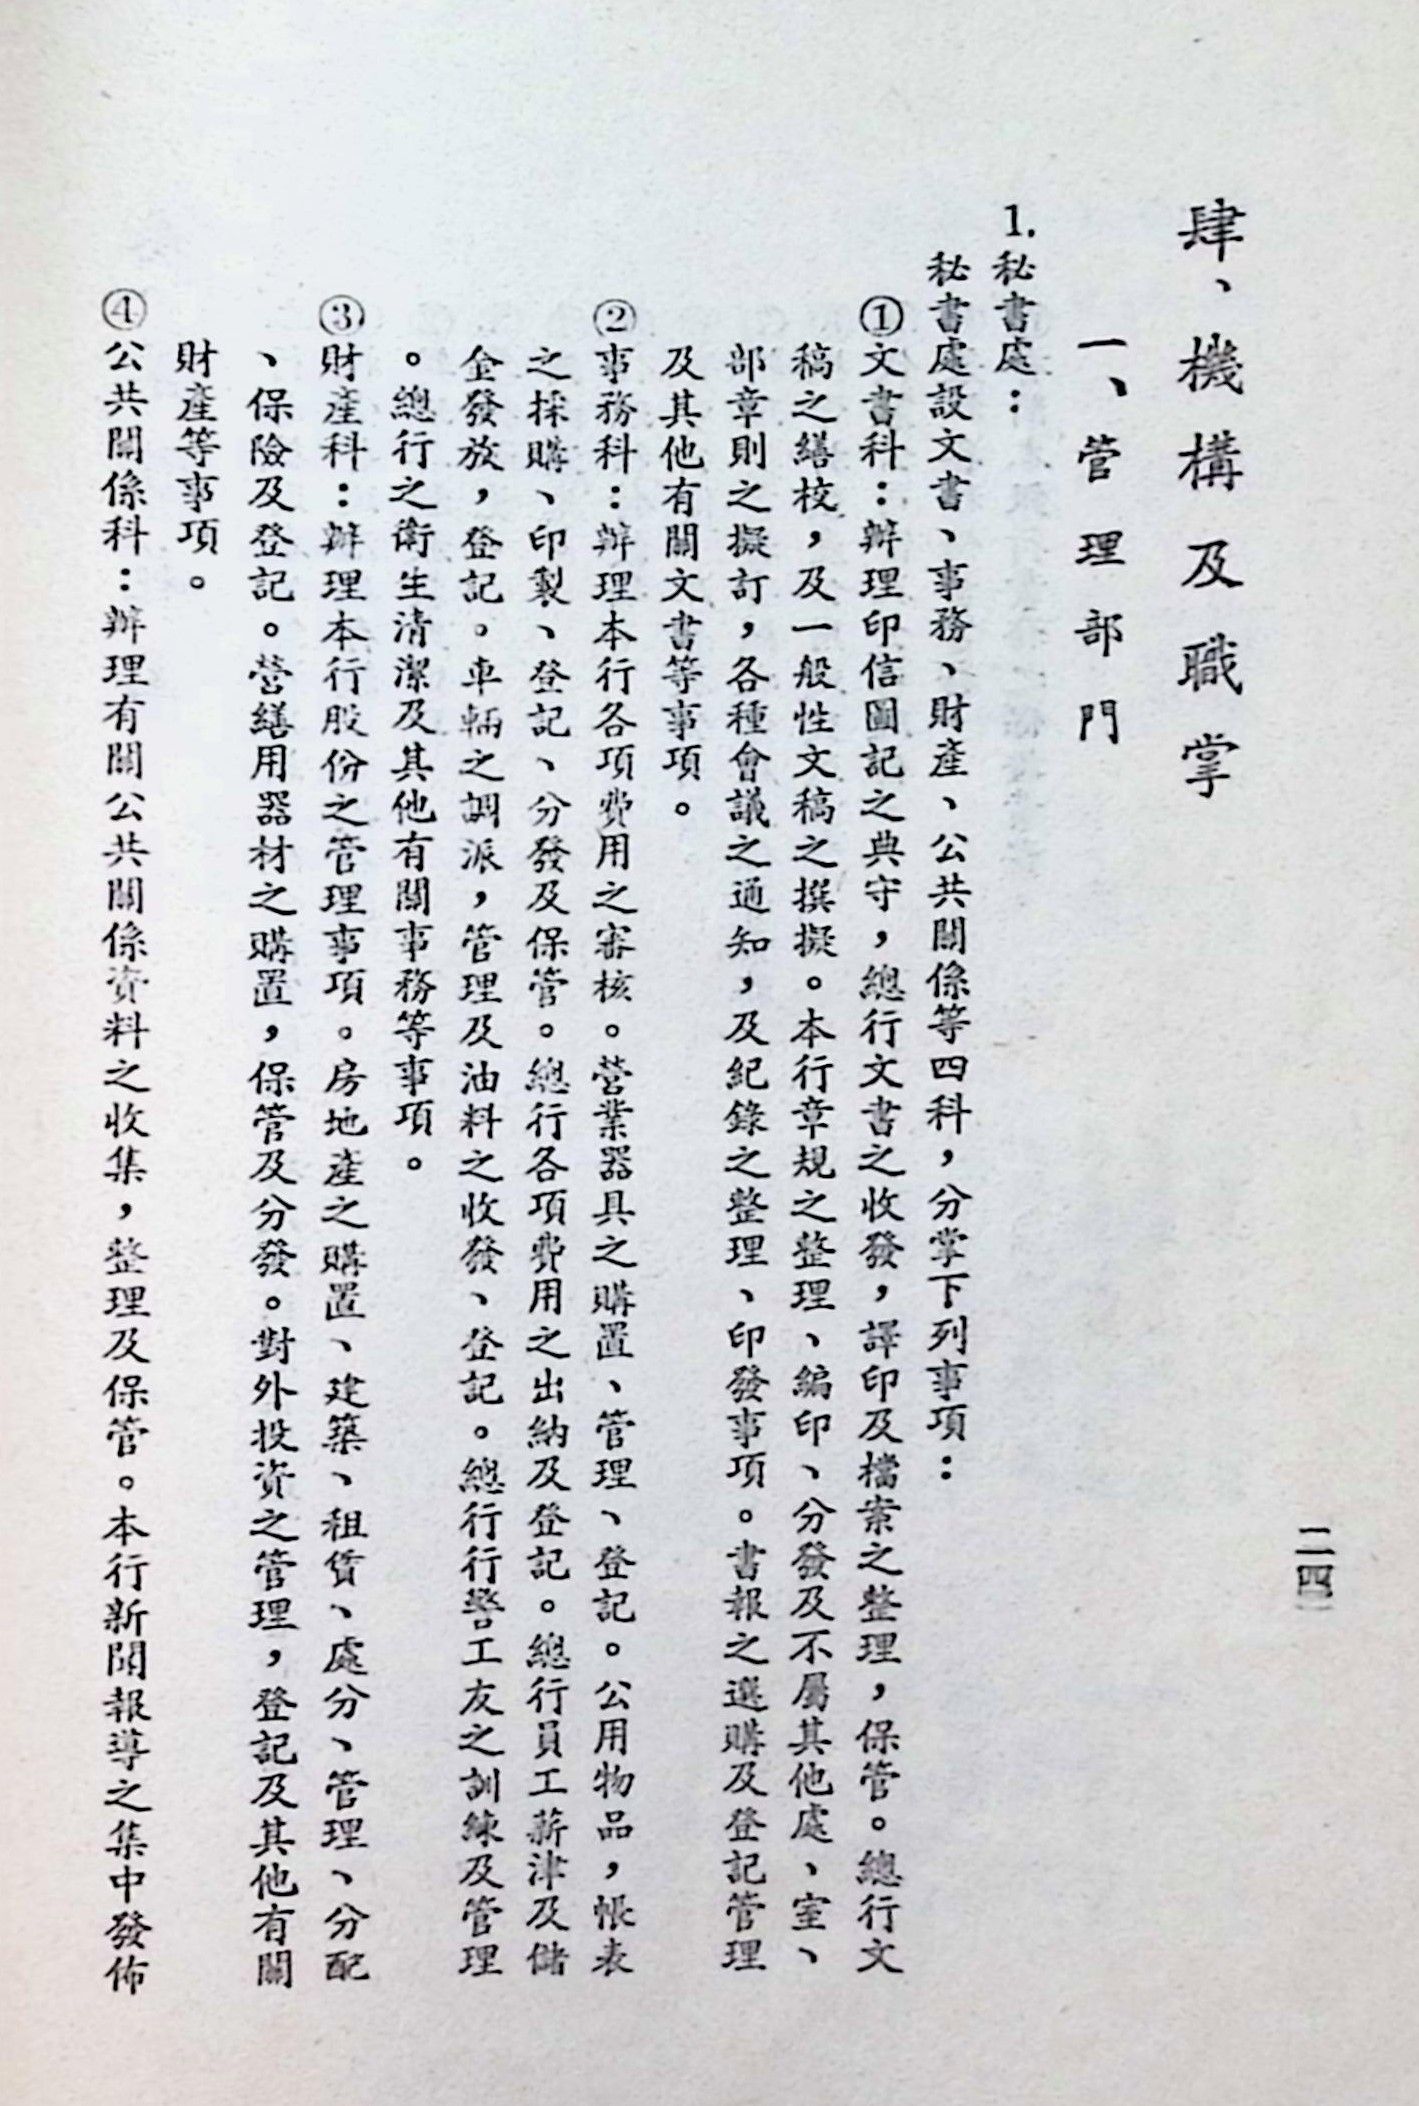 肆、機構及職掌
一、管理部門
1.秘書處：
秘書處設文書、事務、財產、公共關係等四科，分掌下列事項：
①文書科：辦理印信圖記之典守，總行文書之收發，譯印及檔案之整理，保管。總行文
稿之繕校，及一般性文稿之撰擬。本行章規之整理、編印、分發及不屬其他處、室、
部章則之擬訂，各種會議之通知，及紀錄之整理、印發事項。書報之選購及登記管理
及其他有關文書等事項。
②事務科：辦理本行各項費用之審核。營業器具之購置、管理、登記。公用物品，帳表
之採購、印製、登記、分發及保管。總行各項費用之出納及登記。總行員工薪津及儲
金發放，登記。車輛之調派，管理及油料之收發、登記。總行行警工友之訓練及管理
。總行之衛生清潔及其他有關事務等事項。
③財產科：辦理本行股份之管理事項。房地產之購置、建築、租賃、處分、管理、分配
、保險及登記。營繕用器材之購置，保管及分發。對外投資之管理，登記及其他有關
財產等事項。
④公共關係科：辦理有關公共關係資料之收集，整理及保管。本行新聞報導之集中發佈
二四